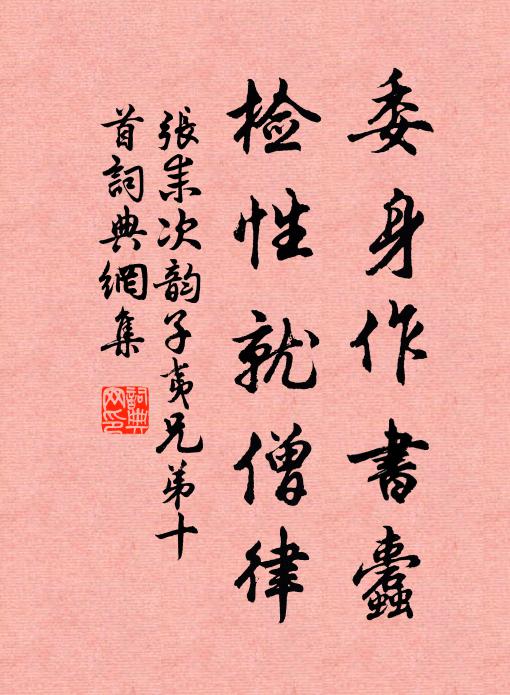 委身作書蠹
检性就僧律
張耒次韵子夷兄弟十
首詞典網集
詞典网印